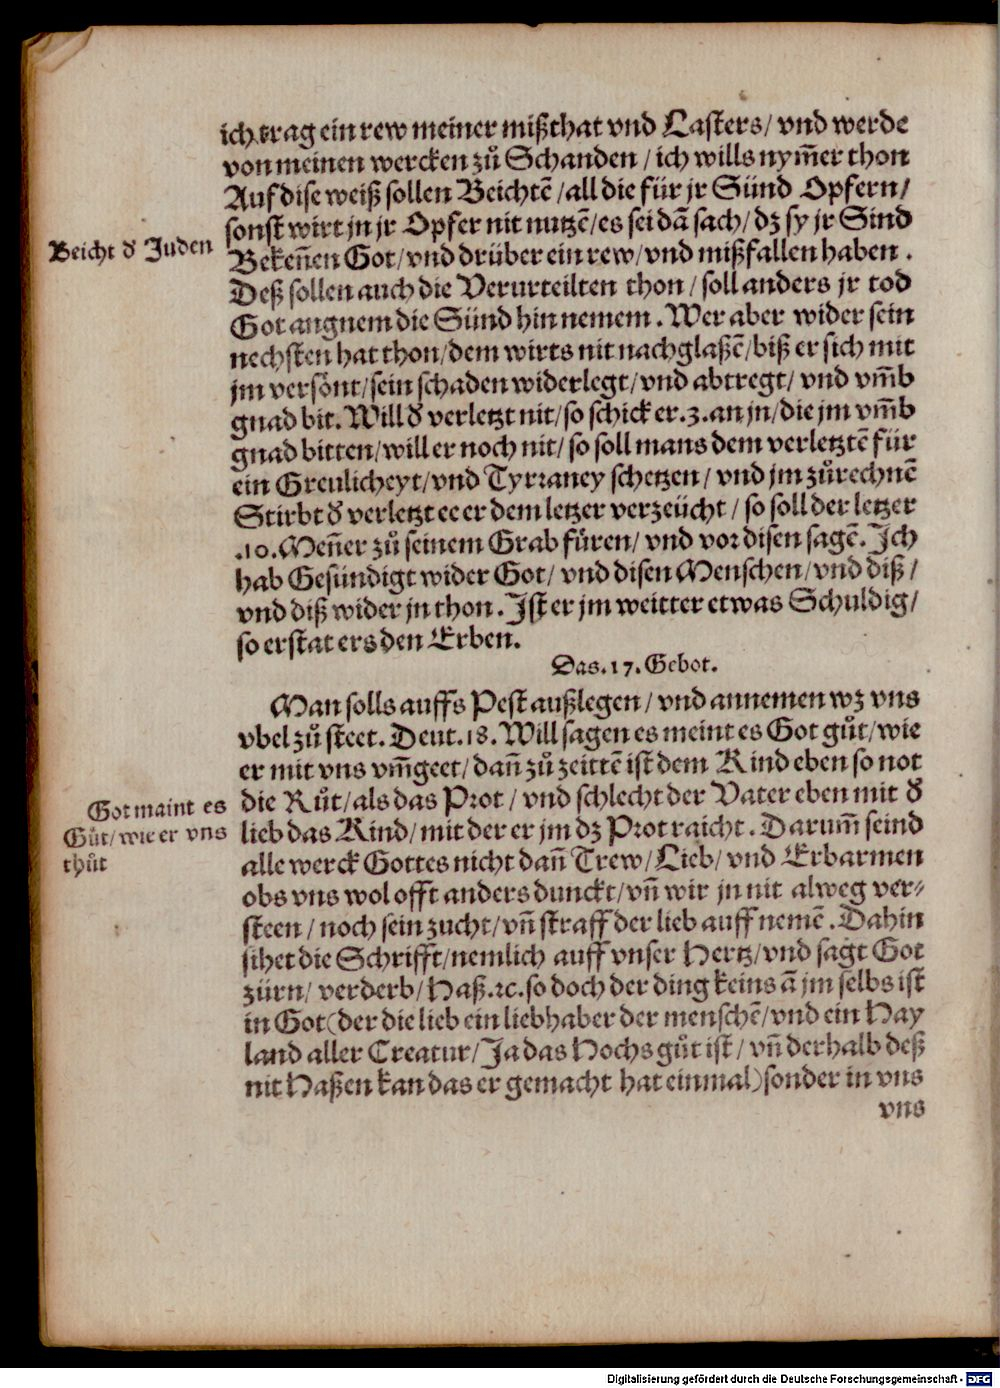 ich trag ein rew meiner mißthat vnd Lasters/ vnd werde
von meinen wercken zů Schanden / ich wills nym̃er thon
Auf dise weiß sollen Beichtẽ /all die für jr Sünd Opfern/
sonst wirt jn jr Opfer nit nutzẽ/es sei dã sach/dz sy jr Sind
Beicht ď Juden
Bekeñen Got/vnd drüber ein rew/vnd mißfallen haben .
Deß sollen auch die Verurteilten thon / soll anders jr tod
Got angnem die Sünd hin nemem . Wer aber wider sein
nechsten hat thon/dem wirts nit nachglaßẽ/biß er sich mit
jm versönt/sein schaden widerlegt/vnd abtregt/ vnd vm̃b
gnad bit. Will ď verletzt nit/so schick er .3. an jn/die jm vm̃b
gnad bitten/will er noch nit/ so soll mans dem verletztẽ für
ein Greulicheyt/vnd Tyrꝛaney schetzen / vnd jm zůrechnẽ
Stirbt ď verletzt ee er dem letzer verzeücht / so soll der letzer
.10. Meñer zů seinem Grab füren/ vnd voꝛ disen sagẽ. Ich
hab Gesündigt wider Got/ vnd disen Menschen/vnd diß /
vnd diß wider jn thon . Ist er jm weitter etwas Schuldig/
so erstat ers den Erben.
Das .17. Gebot.
Man solls auffs Pest außlegen / vnd annemen wz vns
vbel zů steet. Deut.18. Will sagen es meint es Got gůt/wie
er mit vns vm̃geet/dañ zů zeittẽ ist dem Kind eben so not
Got maint es
Gůt/wie er vns
thůt
die Růt/als das Pꝛot / vnd schlecht der Vater eben mit ď
lieb das Kind/mit der er jm dz Pꝛot raicht . Darum̃ seind
alle werck Gottes nicht dañ Trew/Lieb/ vnd Erbarmen
obs vns wol offt anders dunckt/vñ wir jn nit alweg ver⸗
steen / noch sein zucht/vñ straff der lieb auff nemẽ . Dahin
sihet die Schrifft/nemlich auff vnser Hertz/vnd sagt Got
zürn/ verderb/Haß.ꝛc. so doch der ding keins ã jm selbs ist
in Got(der die lieb ein liebhaber der menschẽ/vnd ein Hay
land aller Creatur/Ja das Hochsgůt ist / vñ derhalb deß
nit Haßen kan das er gemacht hat einmal)sonder in vns
vns
Digitalisierung gefördert durch die Deutsche Forschungsgemeinschaft - DFG